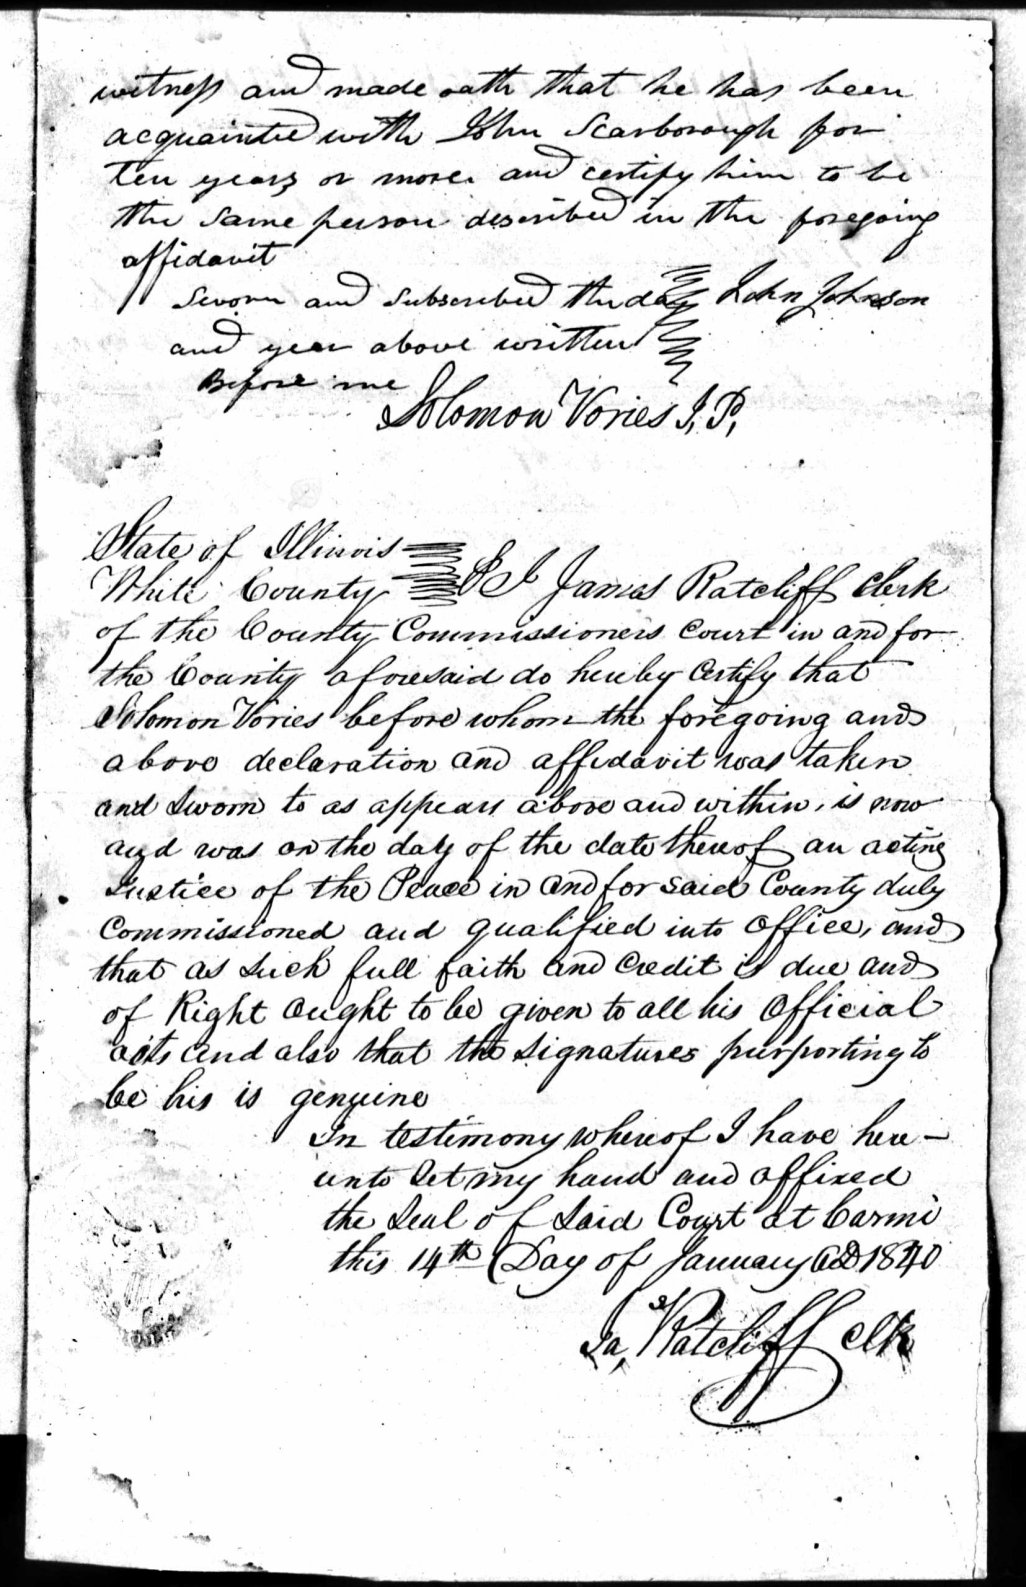 witness and made oath that he has been
acquainted with John Scarborough for
Ten years or more and certify him to be
the same person described in the foregoing
affidavit
Sworn and subscribed the day John Johnson
and year above written
Before me
Solomon Vories J. P.
State of Illinois
White County I James Ratcliff clerk
of the County Commissioners Court in and for
the County aforesaid do hereby certify that
Solomon Vories before whom the foregoing and
above declaration and affidavit was taken
and sworn to as appears above and within, is now
and was on the day of the date thereof an acting
Justice of the Peace in and for said County duly
Commissioned and qualified into office, and
that as such full faith and credit is due and
of Right ought to be given to all his official
acts and also that the signatures purporting to
be his is genuine
In testimony whereof I have here-
unto set my hand and affixed
the seal of said Court at Carmi
this 14th Day of January AD 1840
Jas Ratcliff clk